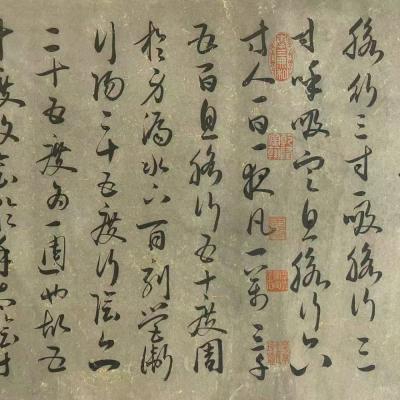 脉行三寸一吸脉行三
寸呼吸定息脉行六
寸人一日一夜凡一萬三千
五百息脉行五十度周
於身漏水下百刻榮衛
行陽二十五度行陰亦
二十五度為一週也故五
十度復會於手太陰寸